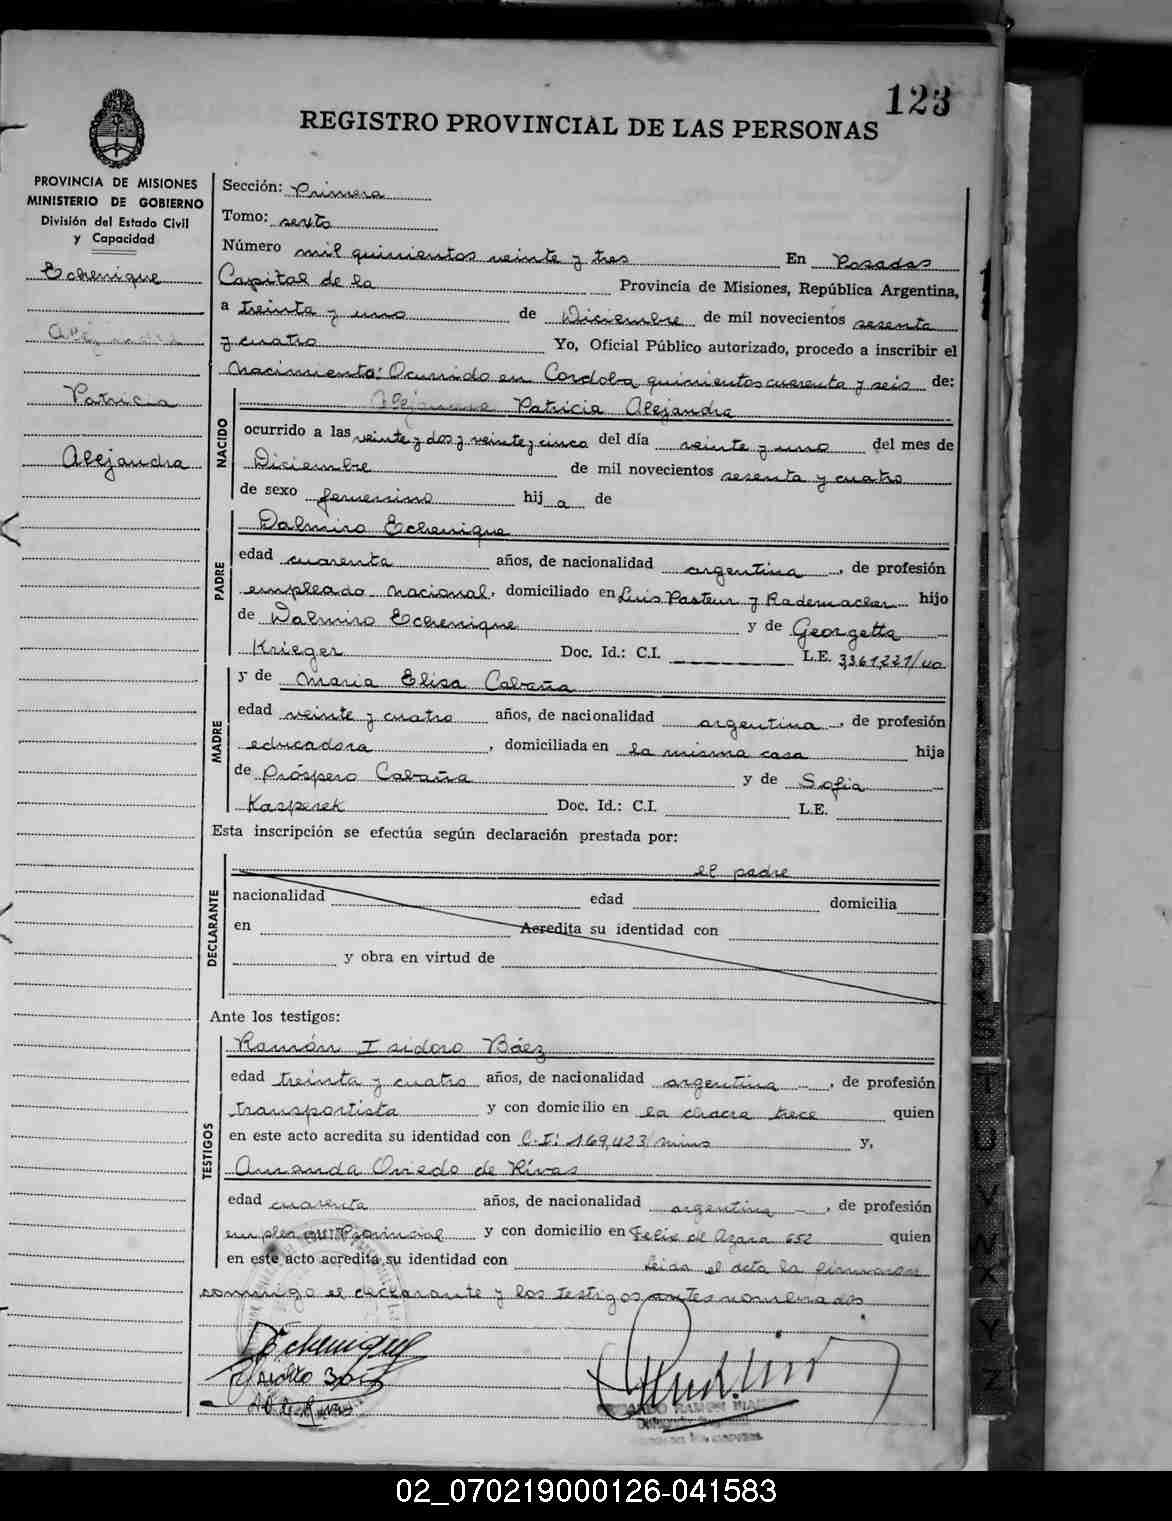 123
REGISTRO PROVINCIAL DE LAS PERSONAS
PROVINCIA DE MISIONES
MINISTERIO DE GOBIERNO
División del Estado Civil
y Capacidad
Echenique
Patricia
Alejandra
Sección: Primera
Tomo: sexto
Número mil quinientos veinte y tres En Posadas
Capital de la Provincia de Misiones, República Argentina,
a treinta y uno de Diciembre de mil novecientos sesenta
y cuatro Yo, Oficial Público autorizado, procedo a inscribir el
Nacimiento: Ocurrido en Cordoba quinientos cuarenta y seis de:
NACIDO
Patricia Alejandra
ocurrido a las veinte y dos y veinte y cinco del día veinte y uno del mes de
Diciembre de mil novecientos sesenta y cuatro
de sexo femenino hija de
PADRE
Dalmiro Echenique
edad cuarenta años, de nacionalidad argentina, de profesión
empleado nacional, domiciliado en Luis Pasteur y Rademacher hijo
de Dalmiro Echenique y de Georgetta
Krieger Doc. Id.: C.I. L.E. 3,361,221/
MADRE
y de Maria Elisa Cabaña
edad veinte y cuatro años, de nacionalidad argentina, de profesión
educadora, domiciliada en la misma casa hija
de Próspero Cabaña y de Sofia
Kasperek Doc. Id.: C.I. L.E.
Esta inscripción se efectúa según declaración prestada por:
DECLARANTE
el padre
nacionalidad edad domicilia
en Acredita su identidad con
y obra en virtud de
Ante los testigos:
TESTIGOS
Ramón Isidoro Báez
edad treinta y cuatro años, de nacionalidad argentina, de profesión
transportista y con domicilio en la chacra trece quien
en este acto acredita su identidad con C.I: 169,423/mnes y,
Amanda Oviedo de Rivas
edad cuarenta años, de nacionalidad argentina, de profesión
Provincial y con domicilio en Felix de Azara 652 quien
en este acto acredita su identidad con Leida el acta la firmaron
conmigo el declarante y los testigos antes nombrados
DEchenique
02_070219000126-041583